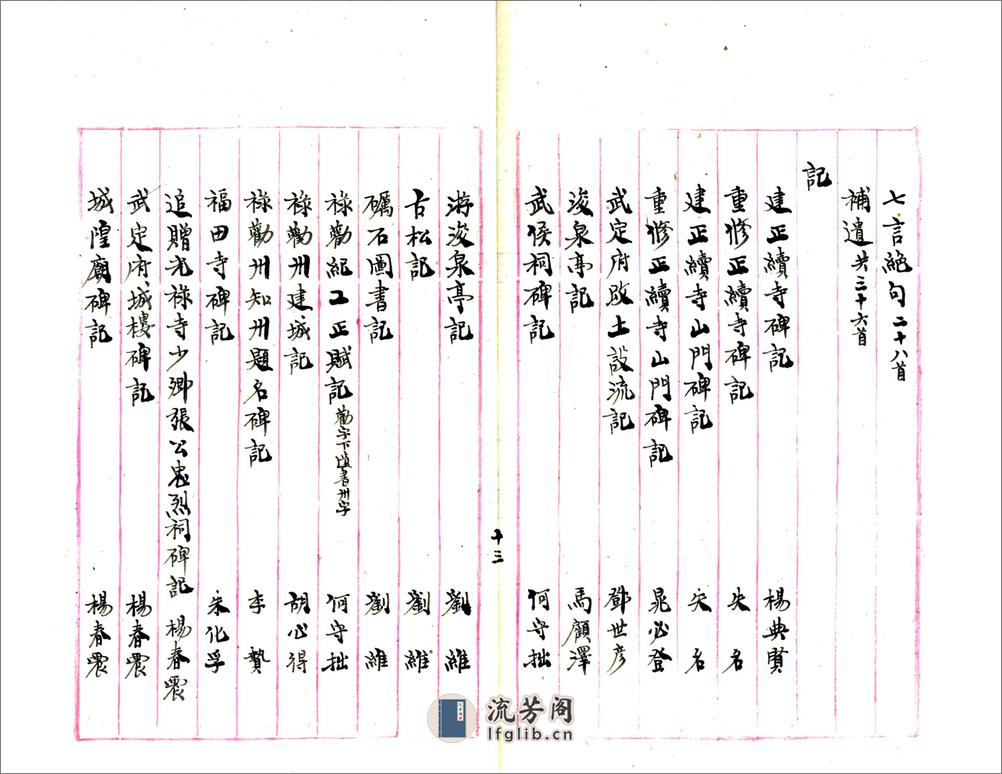 七言絕句二十八首
補遺 共三十六首
記
建正續寺碑記 楊典賢
重修正續寺碑記 失名
建正續寺山門碑記 失名
重修正續寺山門碑記 晁必登
武定府改土設流記 鄧世彦
浚泉亭記 馬顧澤
武侯祠碑記 何守拙
十三
游浚泉亭記 劉維
古松記 劉維
礪石圖書記 劉維
祿勸紀工正賦記 勸字下遺書州字 何守拙
祿勸州建城記 胡心得
祿勸州知州題名碑記 李贄
福田寺碑記 朱化孚
追贈光祿寺少卿張公忠烈祠碑記 楊春震
武定府城樓碑記 楊春震
城隍廟碑記 楊春震
流芳阁
lfglib.cn